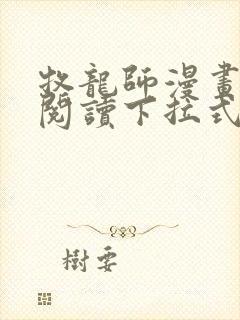 牧龍師漫畫
閱讀下拉式
樹要